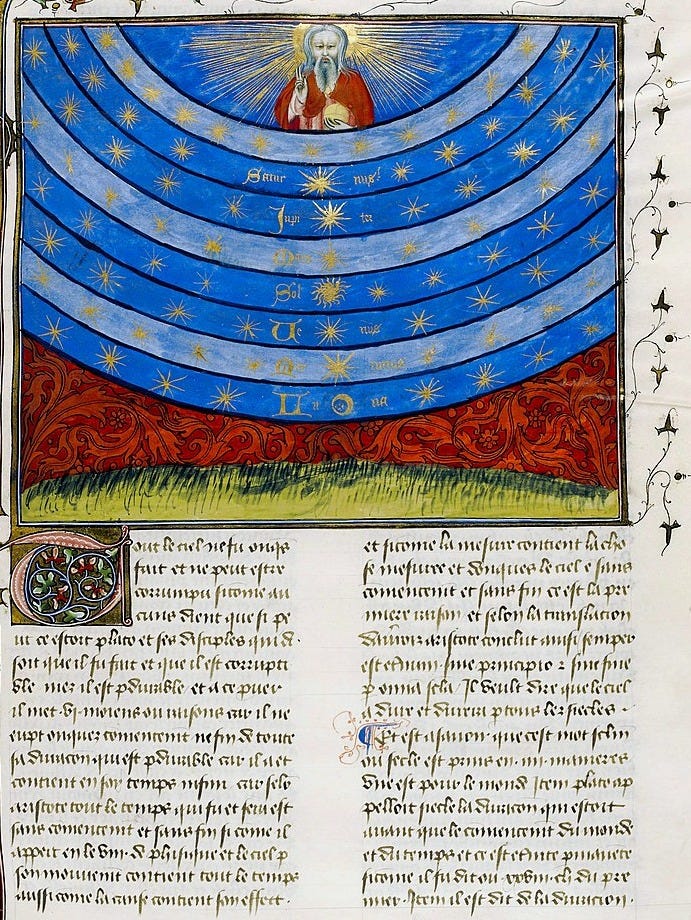 Satur nus
Jupi ter
Mars
Sol
Ve nus
Mer curius
Lu na
Tout le ciel ne fu onqs
fait et ne peut estre
corrumpu sicome au
cuns dient que si pe
ut ce estoit plato et ses disciples qui d.
soit que il fu fait et que il est corrupti
ble mez il est pdurable et a ce puer
il met .vi. moiens ou raisons car il ne
eupt onquez comencent ne fin de toute
sa duracon quest pdurable car il a et
contient en son temps infini . car selo
aristote tout le temps qui fu et sera est
sans comencent et sans fin si come il
appert en le viii. de phisique et le ciel p
son mouvent contient tout le temps
aussi come la cause contient son effect .
et sicome la mesure contient la cho
se mesuree et donques le ciel e sans
comencent et sans fin ce est la pre
miere raison et selon la translacion
daverois aristote conclut ainsi semper
est et unum sine principio 2 sine fine
p omnia secla . Il veult dire que le ciel
a dure et durera p tous les siecles .
Et est assavoir que cest mot seclm
ou siecle est prins en .iiii. manieres
une est pour le monde Item plato ap
pelloit siecle la duracon qui estoit
avant que le comencent du monde
et du temps et ce est
sicome il fu dit ou xxviii. ch. du pre
mier . Item il est dit de la duracion .